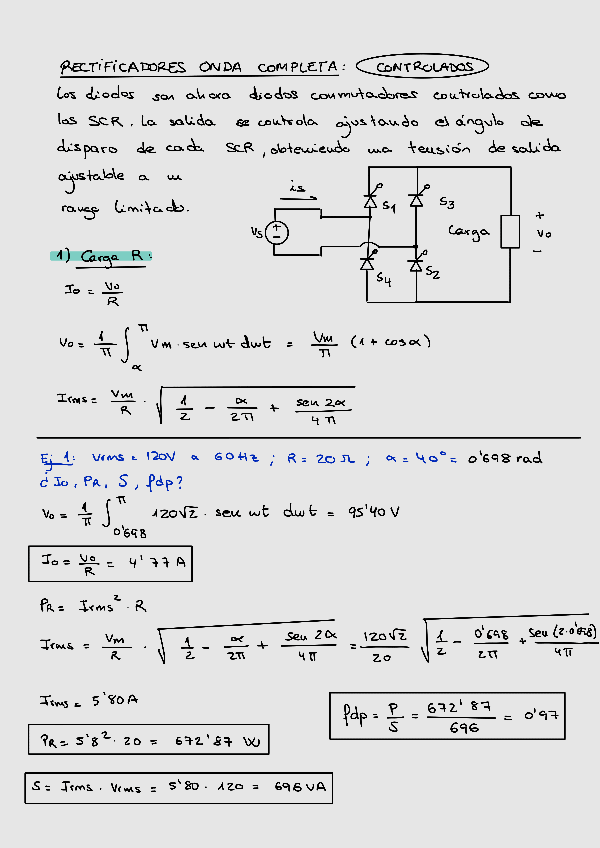 RECTIFICADORES ONDA COMPLETA: CONTROLADOS
Los diodos son ahora diodos conmutadores controlados como
los SCR. La salida se controla ajustando el ángulo de
disparo de cada SCR, obteniendo una tensión de salida
ajustable a un
rango limitado.
is
S1
S3
Vs
+
-
Carga
+
Vo
-
S4
S2
1) Carga R:
Io = Vo/R
Vo = 1/π ∫_α^π Vm · sen wt dwt = Vm/π (1 + cos α)
Irms = Vm/R · √(1/2 - α/2π + sen 2α/4π)
Ej 1: Vrms = 120V a 60Hz ; R = 20 Ω ; α = 40° = 0'698 rad
¿ Io, PR, S, fdp?
Vo = 1/π ∫_0'698^π 120√2 · sen wt dwt = 95'40 V
Io = Vo/R = 4'77 A
PR = Irms² · R
Irms = Vm/R · √(1/2 - α/2π + sen 2α/4π) = 120√2/20 √(1/2 - 0'698/2π + sen (2·0'698)/4π)
Irms = 5'80 A
fdp = P/S = 672'87/696 = 0'97
PR = 5'8² · 20 = 672'87 W
S = Irms · Vrms = 5'80 · 120 = 696 VA